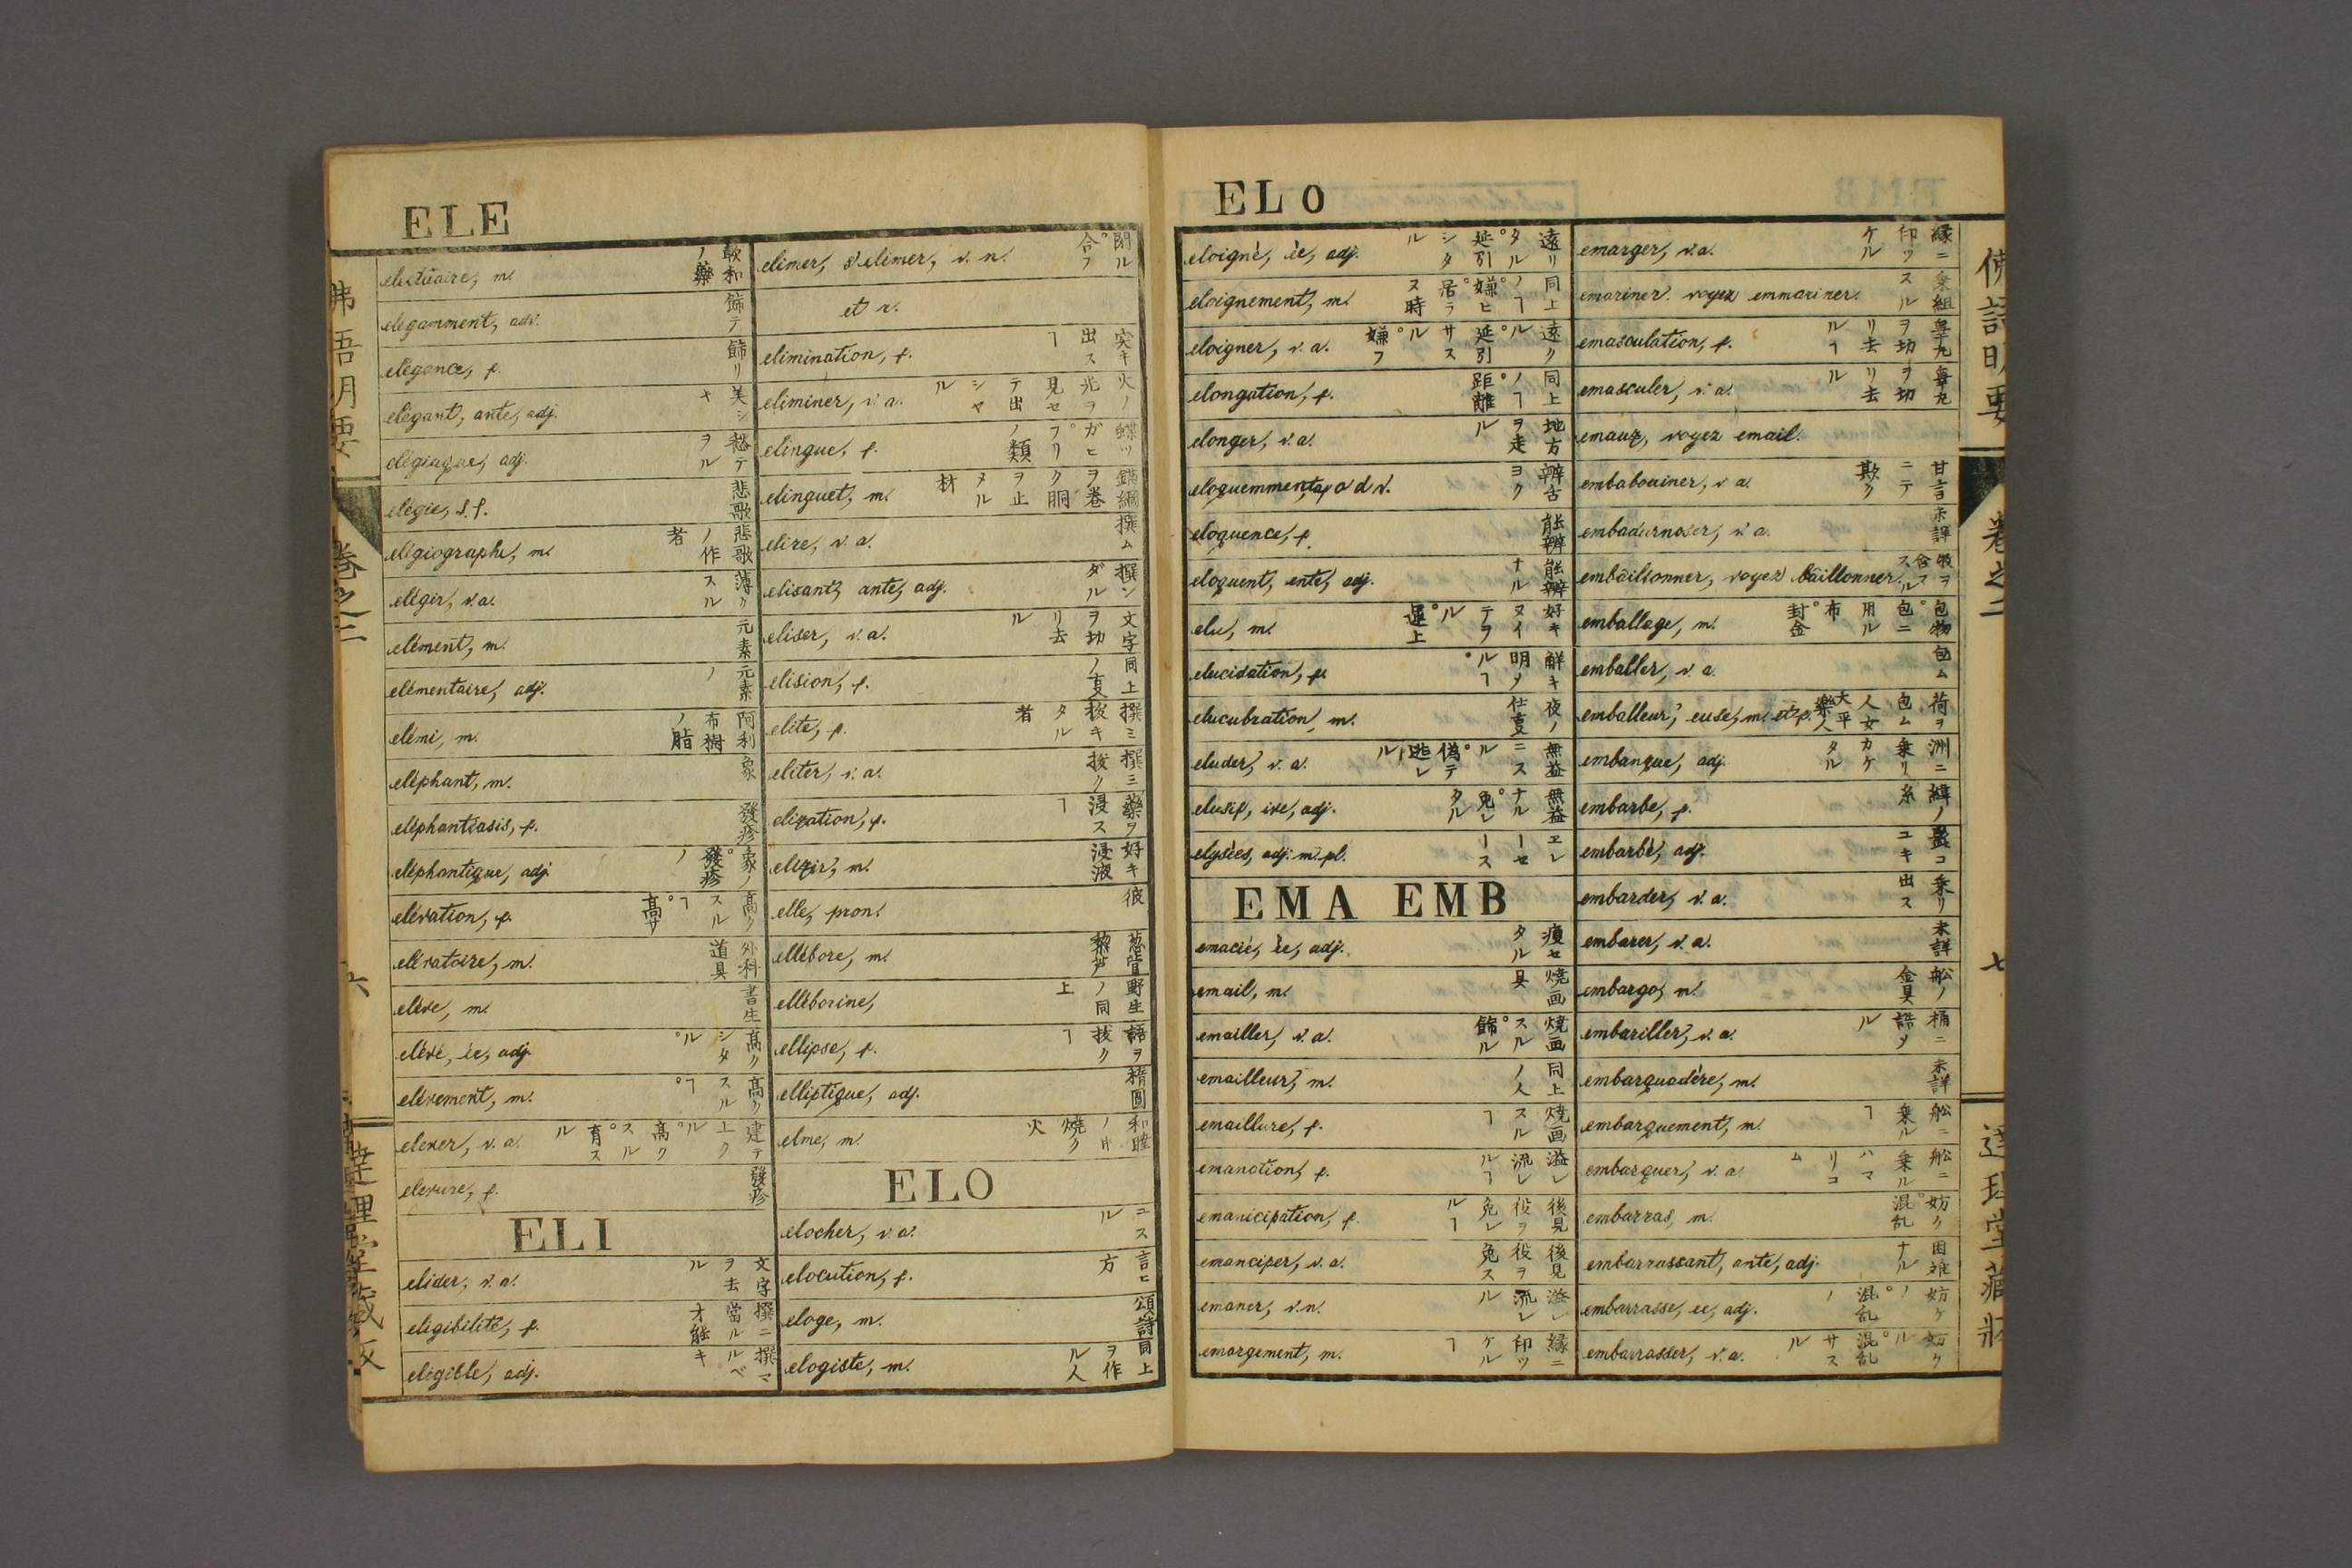 ELE
electuaire, m. 軟和ノ藥
elegamment, adv. 飾テ
elégance, f. 飾リ
elégant, ante, adj. 美シキ
elégiaque, adj. 愁テヲル
elégie, s.f. 悲歌
elégiographe, m. 悲歌ノ作者
elégir, v.a. 薄クスル
elément, m. 元素
elémentaire, adj. 元素ノ
elémi, m. 阿利布樹ノ脂
eléphant, m. 象
eléphantiasis, f. 發疹
eléphantique, adj. 象ノ。發疹ノ
elévation, f. 高クスルヿ。高サ
elévatoire, m. 外科道具
eléve, m. 書生
elévé, ée, adj. 高クシタル。
elévement, m. 高クスルヿ。
elever, v.a. 建テ上クル。高クスル。育スル
elevure, f. 發疹
ELI
elider, v.a. 文字ヲ去ル
eligibilité, f. 撰ニ當ルオ能
eligible, adj. 撰マルベキ
elimer, s'elimer, v.n. 閉ル。合フ
et r.
elimination, f. 突キ出スヿ
eliminer, v.a. 火ノ光ヲ見セテ出シヤル
elingue, f.
elinguet, m. 錨綱ヲ巻ク胴ヲ止メル材
elire, v.a. 撰ム
elisant, ante, adj. 撰ンダル
eliser, v.a. 文字ヲ切リ去ル
elision, f. 同上ノ叓
elité, f. 撰ミ拔キタル者
eliter, v.a. 撰ミ拔ク
elixation, f. 藥ヲ浸スヿ
elixir, m. 好キ浸液
elle, pron. 彼
ellébore, m.
elléborine, 野生ノ同上
ellipse, f. 語ヲ拔クヿ
elliptique, adj. 楕圓
elme, m.
ELO
elocher, v.a. ニスル
elocution, f. 言ヒ方
eloge, m. 頌詩
elogiste, m. 同上ヲ作ル人
ELO
eloigné, ée, adj. 遠リタル。延引シタル
eloignement, m. 同上ノヿ。嫌ヒ。居ラヌ時
eloigner, v.a. 遠クル。延引サスル。嫌フ
elongation, f. 同上ノヿ。距離
elonger, v.a. 地方ヲ走ル
eloquemment, adv. 辯舌ヨク
eloquence, f. 能辯
eloquent, ente, adj. 能辯ナル
elu, m.
elucidation, f. 解キ明ノルヿ。
elucubration, m. 夜ノ仕叓
eluder, v.a. 無益ニスル。偽テ逃レル
elusif, ive, adj. 無益ナル。免レタル
elysées, adj. m. pl. エレーセース
EMA EMB
emacié, ée, adj. 瘦セタル
email, m. 燒画具
emailler, v.a. 燒画スル。飾ル
emailleur, m. 同上ノ人
emaillure, f. 燒画スルヿ
emanation, f. 溢レ流レルヿ
emanicipation, f. 後見役ヲ免レルヿ
emanciper, v.a. 後見役ヲ免ス
emaner, v.n. 溢レ流レル
emargement, m. 縁ニ印ツケルヿ
emarger, v.a. 縁ニ印ツケル
emariner. voyez emmariner. 乗組スル
emasculation, f. 睾丸ヲ切リ去ルヿ
emasculer, v.a. 睾丸ヲ切リ去ル
emaux, voyez email.
embabouiner, v.a. 甘言ニテ欺ク
embadurnoser, v.a. 未詳
embâillonner, voyez bâillonner.
emballage, m. 包物。包ニ用ル布。封金
emballer, v.a. 包ム
emballeur, euse, m. et f. 荷ヲ包ム人女大平樂人
embanque, adj. 洲ニ乗リカケタル
embarbe, f. 緯ノ糸
embarbé, adj.
embarder, v.a. 乗リ出ス
embarer, v.a. 未詳
embargo, m. 舩ノ金具
embariller, v.a. 桶ニ詰メル
embarquadère, m. 未詳
embarquement, m. 舩ニ乗ルヿ
embarquer, v.a. 舩ニ乗ルハマリコム
embarras, m. 妨ク。混乱
embarrassant, ante, adj. 困難ナル
embarrasse, ee, adj. 妨ケノ。混乱ノ
embarrasser, v.a. 妨クル。混乱サスル
佛語明要 卷之二 七 達理堂藏版